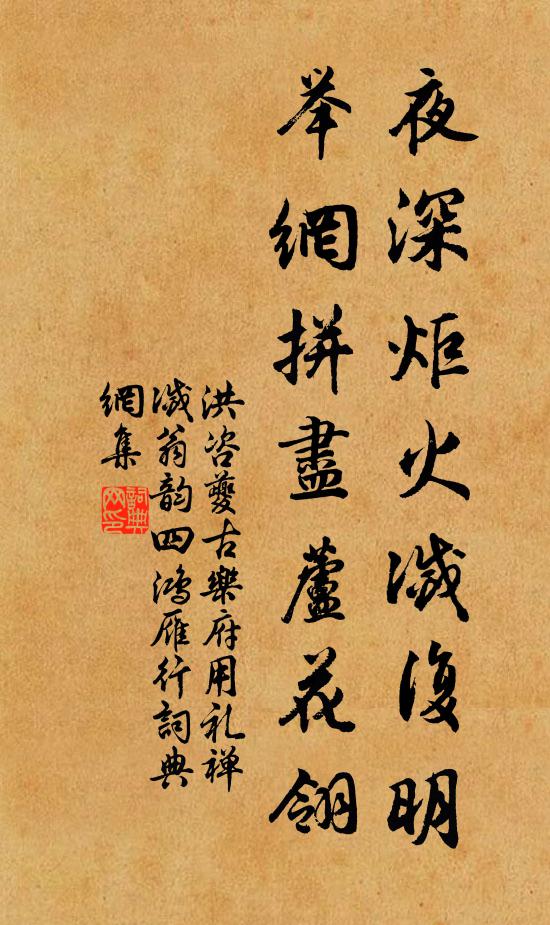 夜深炬火滅復明
举網拼盡蘆花翎
洪咨夔古樂府用礼禅
滅翁韵四鴻雁行詞典
網集
詞典網印